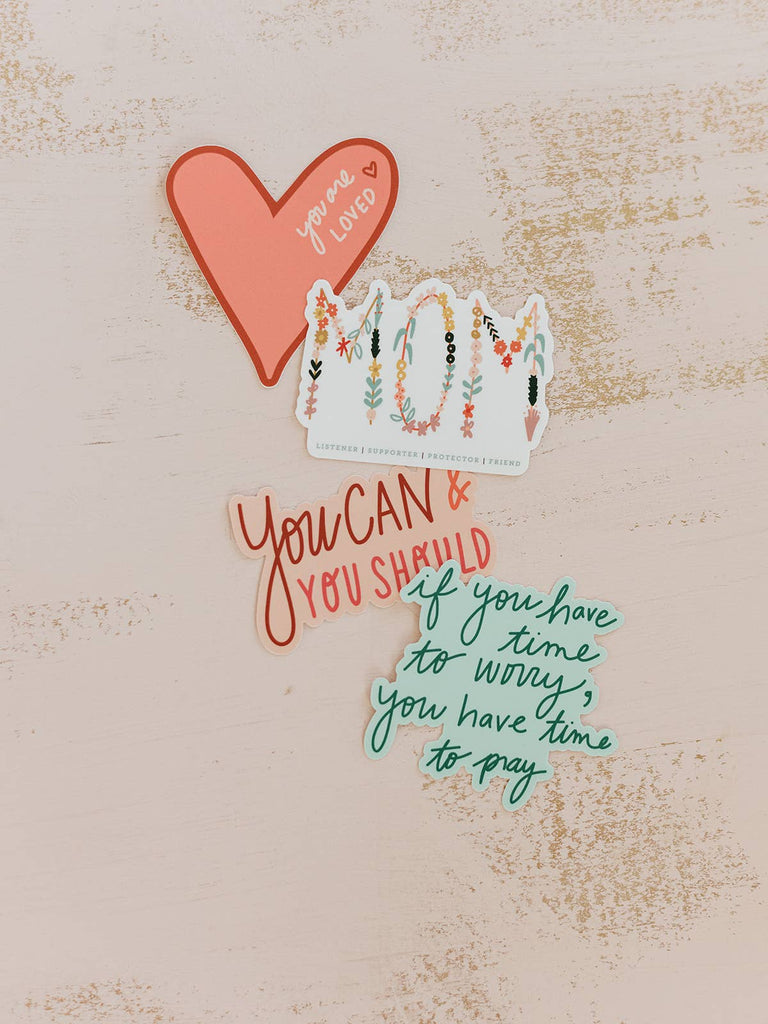 you are
LOVED
MOM
LISTENER | SUPPORTER | PROTECTOR | FRIEND
You CAN &
YOU SHOULD
if you have
time
to worry,
you have time
to pray